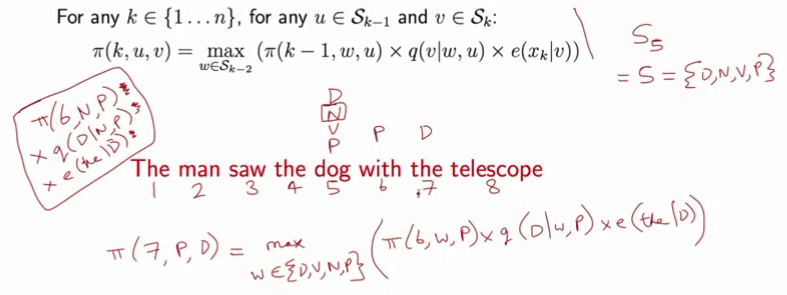 For any k ∈ {1...n}, for any u ∈ S_{k−1} and v ∈ S_k:
π(k, u, v) = max_{w∈S_{k−2}} (π(k − 1, w, u) × q(v|w, u) × e(x_k|v))
S_5
= S = {D,N,V,P}
π(6,N,P)*
× q(D|N,P)*
× e(the|D)*
D
N
V
P P D
The man saw the dog with the telescope
1 2 3 4 5 6 7 8
π(7,P,D) = max_{w∈{D,V,N,P}} (π(6,w,P) × q(D|w,P) × e(the|D))